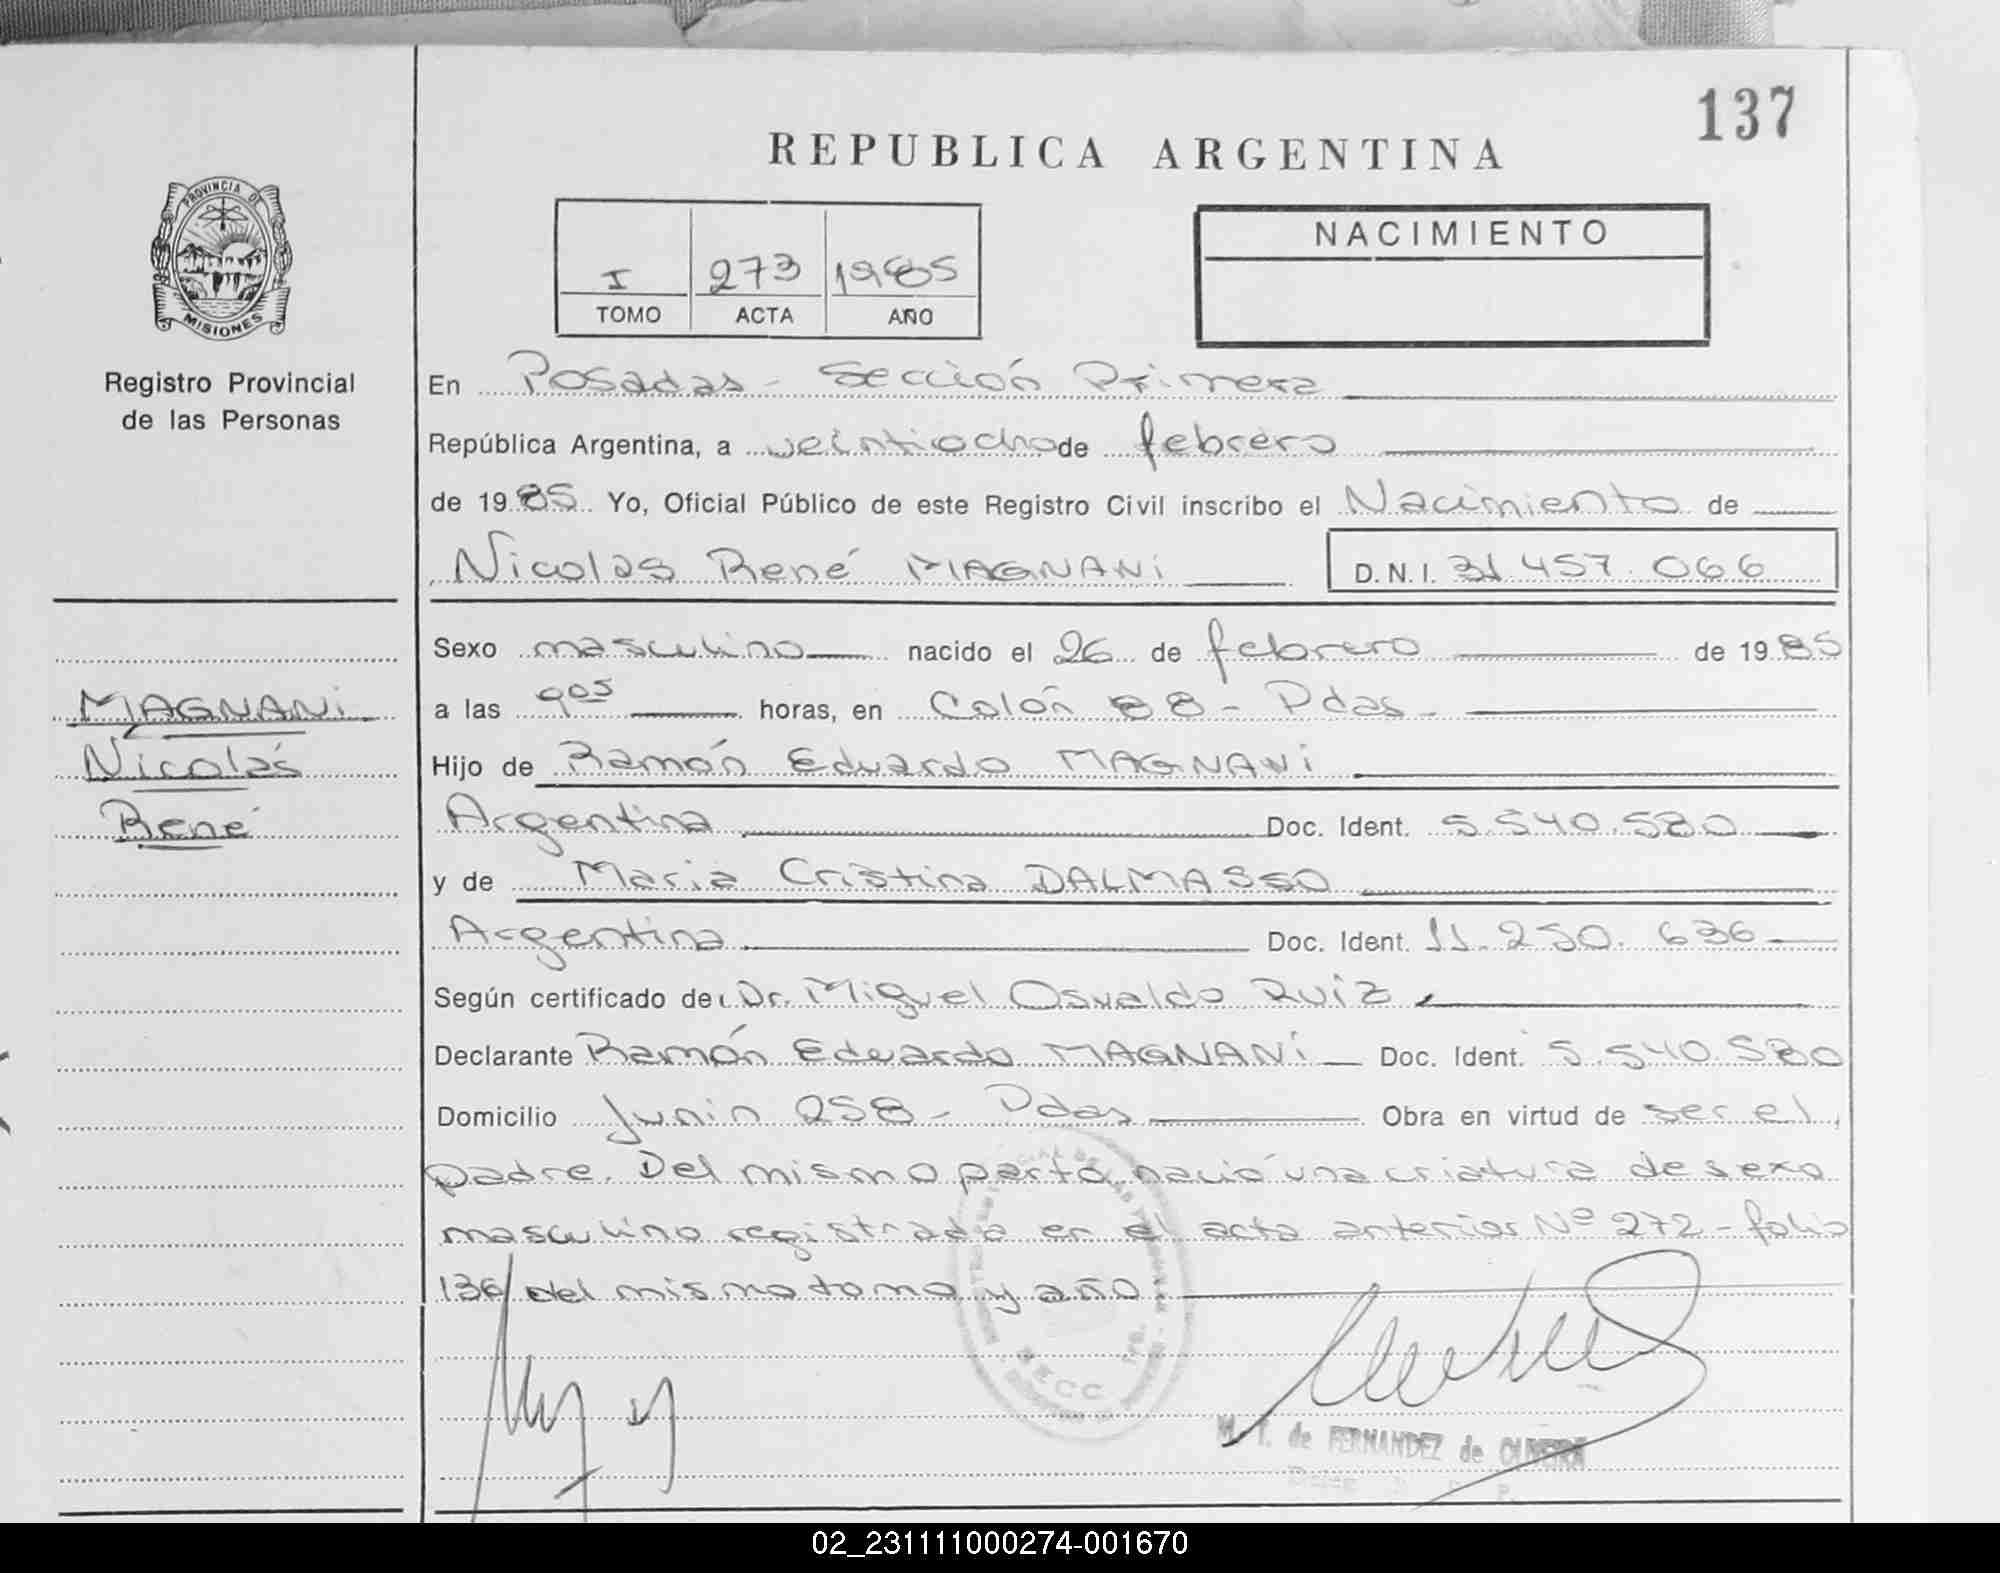 137
REPUBLICA ARGENTINA
PROVINCIA DE
MISIONES
Registro Provincial
de las Personas
I 273 1985
TOMO ACTA AÑO
NACIMIENTO
En Posadas - Sección Primera
República Argentina, a veintiocho de febrero
de 1985. Yo, Oficial Público de este Registro Civil inscribo el Nacimiento de
Nicolas René MAGNANi D.N.I. 31.457.066
Sexo masculino nacido el 26 de febrero de 1985
a las 9 05 horas, en Colón 88 - Pdas -
MAGNANi
Nicolás
René
Hijo de Ramón Eduardo MAGNANi
Argentina Doc. Ident. 5.540.580
y de Maria Cristina DALMASSO
Argentina Doc. Ident. 11.250.636
Según certificado de: Dr. Miguel Osvaldo Ruiz
Declarante Ramón Eduardo MAGNANi Doc. Ident. 5.540.580
Domicilio Junin 258 - Pdas Obra en virtud de ser el
padre. Del mismo parto nació una criatura de sexo
masculino registrada en el acta anterior Nº 272 - folio
136 del mismo tomo y año.
M. T. de FERNANDEZ de OLIVEIRA
02_231111000274-001670